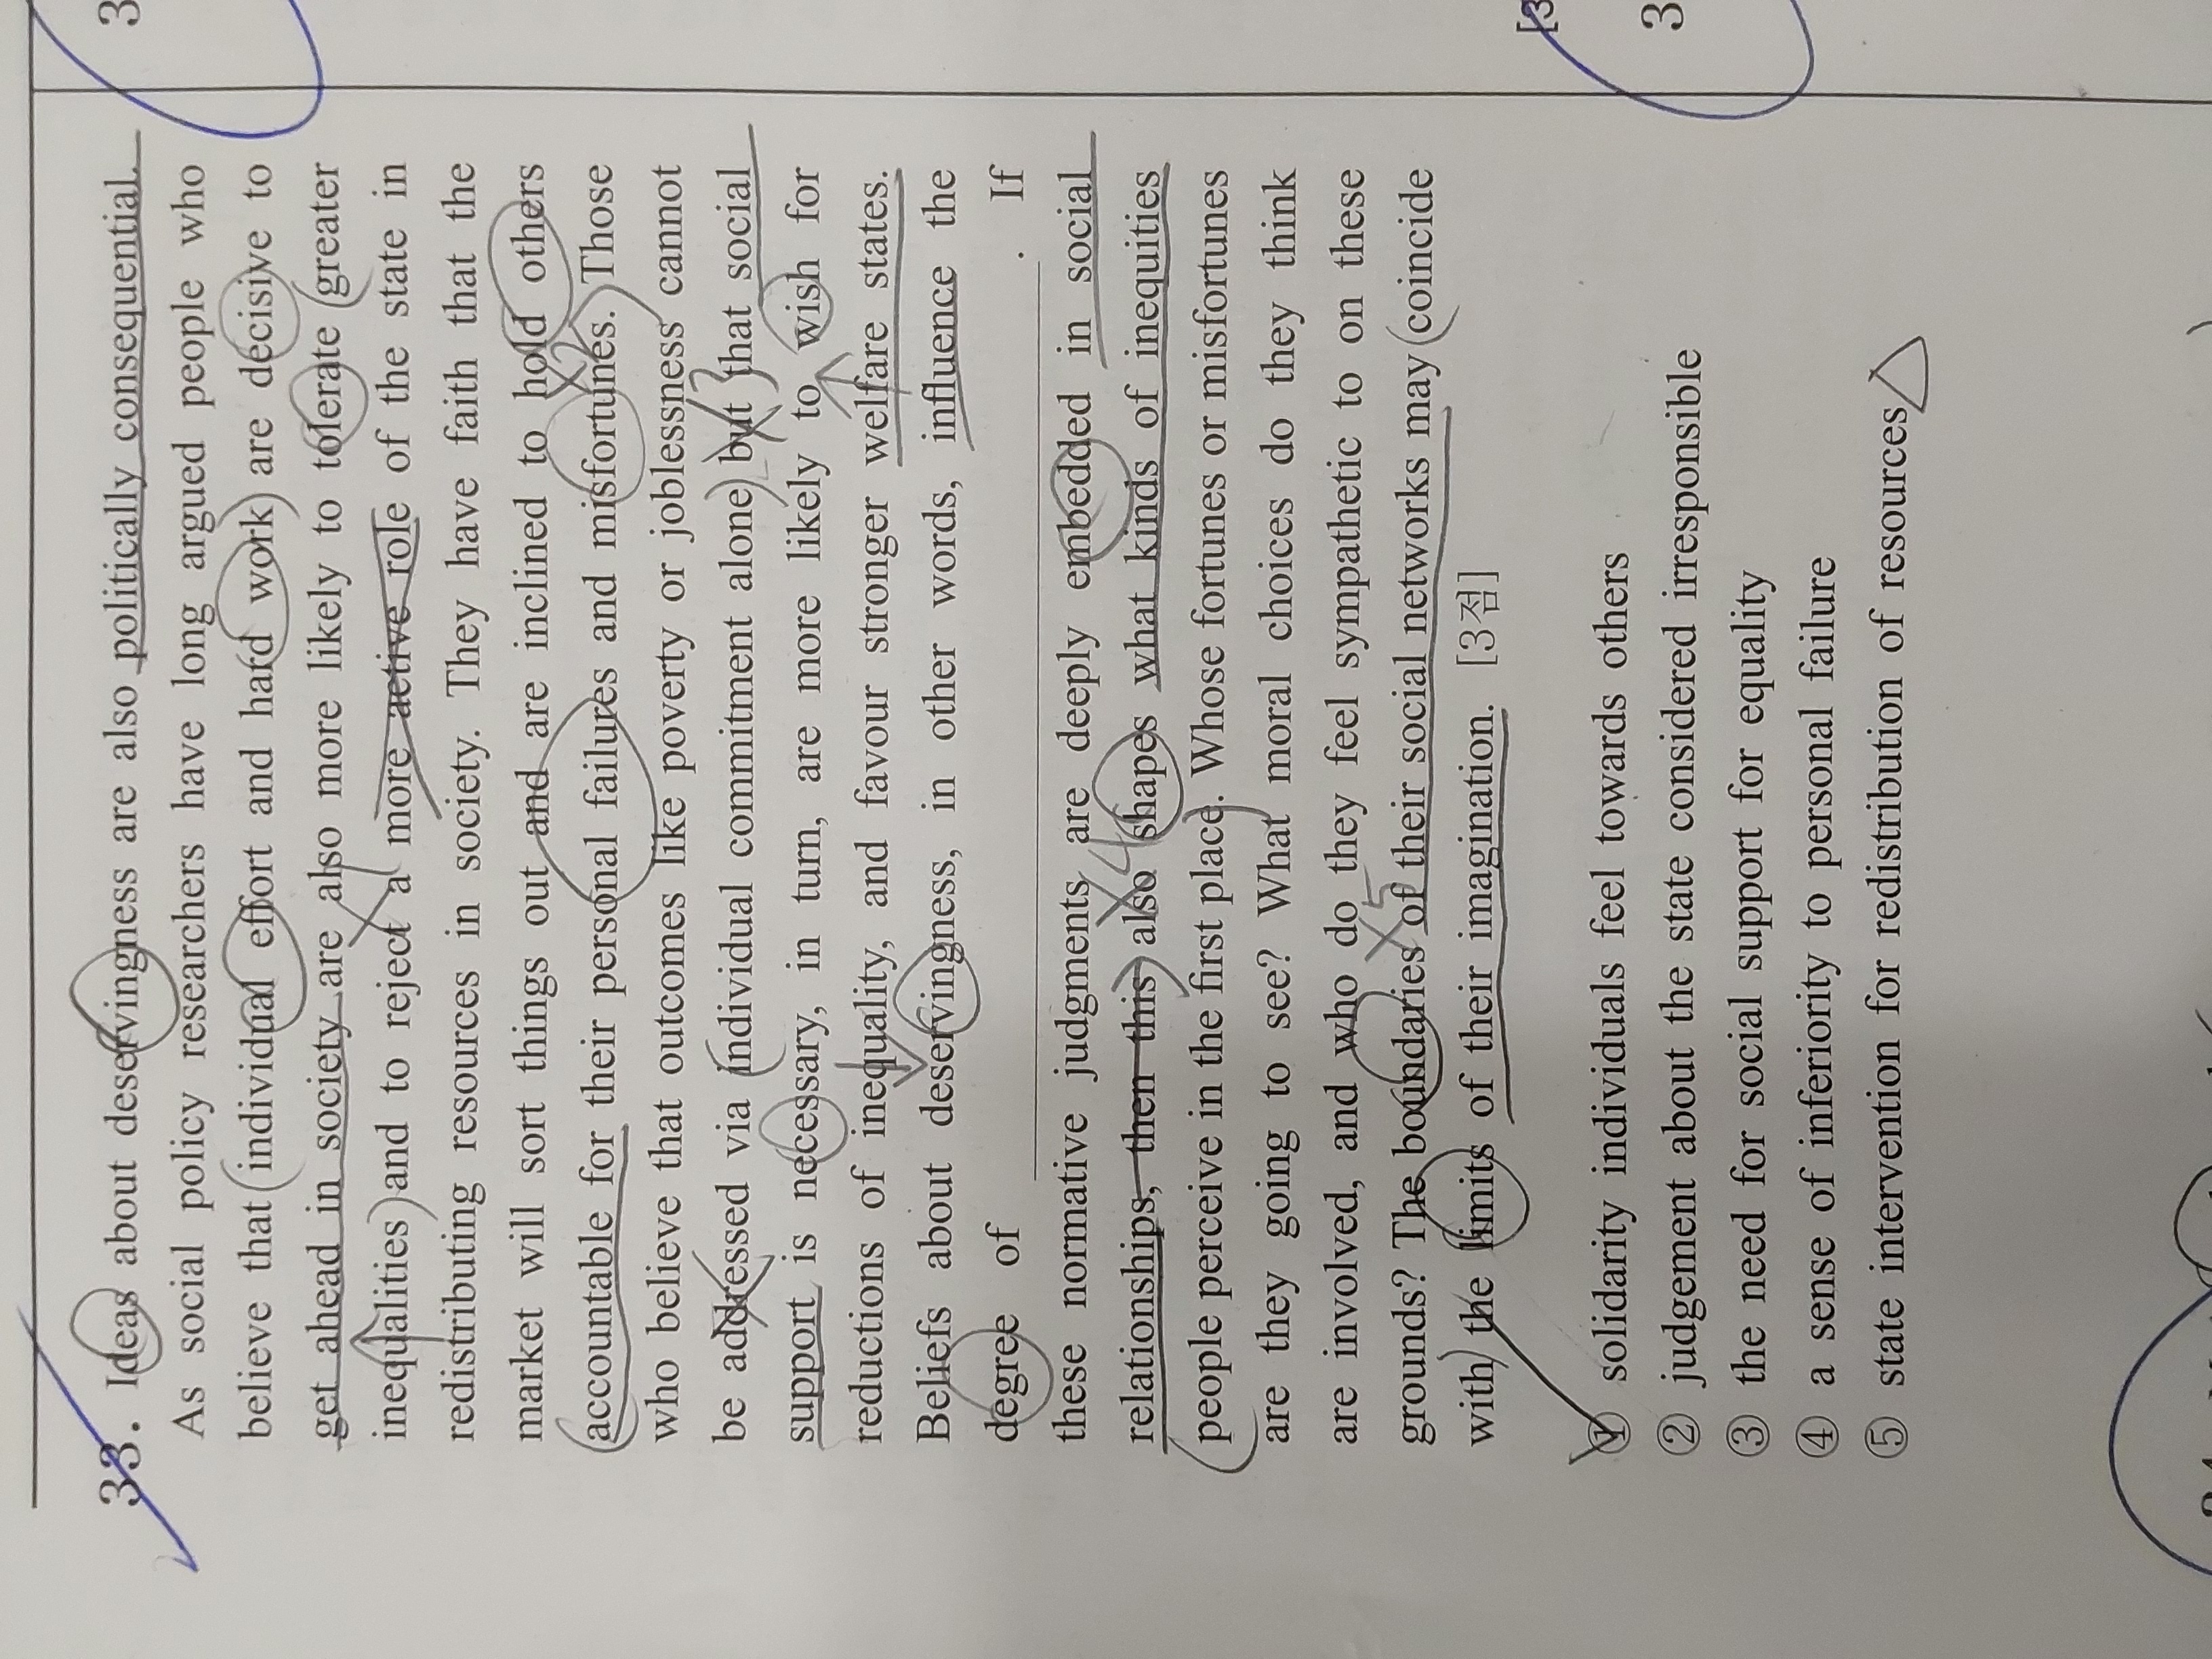 33. Ideas about deservingness are also politically consequential.
As social policy researchers have long argued people who
believe that individual effort and hard work are decisive to
get ahead in society are also more likely to tolerate greater
inequalities and to reject a more active role of the state in
redistributing resources in society. They have faith that the
market will sort things out and are inclined to hold others
accountable for their personal failures and misfortunes. Those
who believe that outcomes like poverty or joblessness cannot
be addressed via individual commitment alone but that social
support is necessary, in turn, are more likely to wish for
reductions of inequality, and favour stronger welfare states.
Beliefs about deservingness, in other words, influence the
degree of . If
these normative judgments are deeply embedded in social
relationships, then this also shapes what kinds of inequities
people perceive in the first place. Whose fortunes or misfortunes
are they going to see? What moral choices do they think
are involved, and who do they feel sympathetic to on these
grounds? The boundaries of their social networks may coincide
with the limits of their imagination. [3점]
① solidarity individuals feel towards others
② judgement about the state considered irresponsible
③ the need for social support for equality
④ a sense of inferiority to personal failure
⑤ state intervention for redistribution of resources
3
[3
3